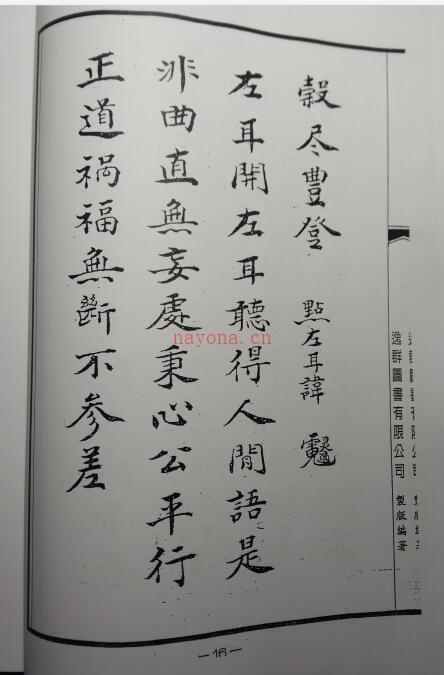 穀尽豐登 點左耳諱
左耳開左耳聽得人間語是
非曲直無妄處秉心公平行
正道禍福無斷不參差
逸群圖書有限公司 製版編著
nayona.cn
—16—